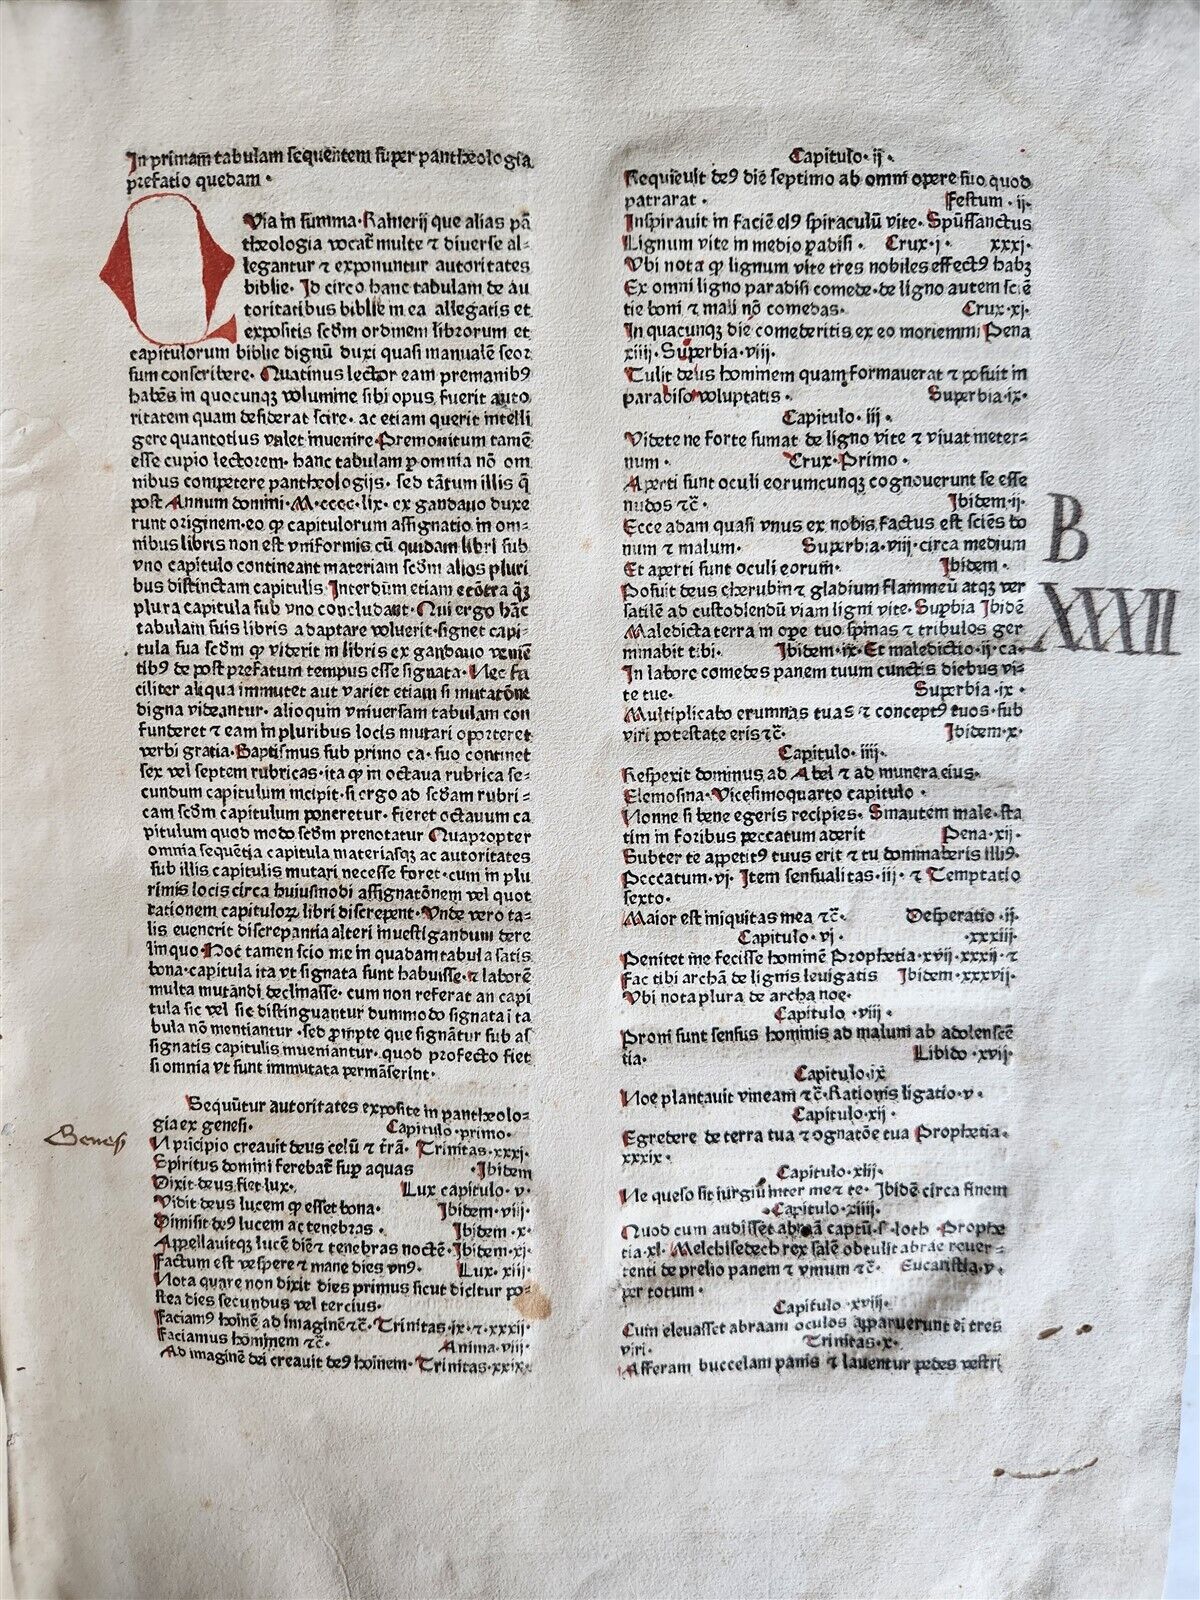 In primam̄ tabulam sequentem super pantheologia
prefatio quedam.
QVia in summa. Rainerij que alias pā
theologia vocat̄ multe ⁊ diuerse al-
legantur ⁊ exponuntur autoritates
biblie. Id circo hanc tabulam de au
toritatibus biblie in ea allegatis et
expositis scd̄m ordinem librorum et
capitulorum biblie dignū duxi quasi manualē seor
sum conscribere. Quatinus lector eam premanibꝰ
habēs in quocunqꝫ volumine sibi opus fuerit auto
ritatem quam desiderat scire. ac etiam querit intelli
gere quantotius valet inuenire. Premonitum tamē
esse cupio lectorem. hanc tabulam ꝑ omnia nō om
nibus competere pantheologijs. sed tātum illis q̄
post Annum domini. M.cccc.lix. ex gandauo duxe
runt originem. eo ꝙ capitulorum assignatio in om-
nibus libris non est vniformis cū quidam libri sub
vno capitulo contineant materiam scd̄m alios pluri
bus distinctam capitulis. Interdūm etiam ecōtra q̄ꝫ
plura capitula sub vno concludant. Qui ergo hāc
tabulam suis libris adaptare voluerit. signet capi-
tula sua scd̄m ꝙ viderit in libris ex gandauo veniē
tibꝰ de post prefatum tempus esse signata. Nec fa
ciliter aliqua immutet aut variet etiam si mutatōne
digna videantur. alioquin vniuersam tabulam con
funderet ⁊ eam in pluribus locis mutari oporteret
verbi gratia. Baptismus sub primo ca. suo continet
sex vel septem rubricas. ita ꝙ in octaua rubrica se-
cundum capitulum incipit. si ergo ad scd̄am rubri-
cam scd̄m capitulum poneretur. fieret octauum ca
pitulum quod modo scd̄m prenotatur Quapropter
omnia sequētia capitula materiasqꝫ ac autoritates
sub illis capitulis mutari necesse foret. cum in plu
rimis locis circa huiusmodi assignatōnem vel quot
tationem capituloꝝ libri discrepent. Vnde vero ta-
lis euenerit discrepantia alteri inuestigandum dere
linquo. Hoc tamen scio me in quadam tabula satis
bona. capitula ita vt signata sunt habuisse. ⁊ laborē
multa mutandi declinasse. cum non referat an capi
tula sic vel sic distinguantur dummodo signata ī ta
bula nō mentiantur. sed ꝓmpte que signātur sub as
signatis capitulis inueniantur. quod profecto fiet
si omnia vt sunt immutata permāserint.
Sequūtur autoritates exposite in pantheolo-
gia ex genesi. Capitulo primo.
Genesis
IN pricipio creauit deus celū ⁊ t̄rā. Trinitas.xxxj.
Spiritus domini ferebat̄ suꝑ aquas .Ibidem
Dixit deus fiet lux. Lux capitulo.v.
Vidit deus lucem ꝙ esset bona. Ibidem.viij.
Dimisit deꝰ lucem ac tenebras. Ibidem.x.
Appellauitqꝫ lucē diē ⁊ tenebras noctē. Ibidem.xj.
Factum est vespere ⁊ mane dies vnꝰ. Lux.xiij.
Nota quare non dixit dies primus sicut dicitur po-
stea dies secundus vel tercius.
Faciamꝰ hoīnē ad imaginē ⁊c̄. Trinitas.ix.⁊.xxxij.
Faciamus hominem ⁊c̄. Anima.viij.
Ad imaginē dei creauit deꝰ hoīnem. Trinitas.xxix.
Capitulo.ij.
Requieuit deꝰ diē septimo ab omni opere suo quod
patrarat. Festum.ij.
Inspirauit in faciē eiꝰ spiraculū vite. Spūssanctus
Lignum vite in medio ꝑadisi. Crux.j. xxxj.
Vbi nota ꝙ lignum vite tres nobiles effectꝰ habꝫ
Ex omni ligno paradisi comede. de ligno autem sciē
tie boni ⁊ mali nō comedas. Crux.xj.
In quacunqꝫ die comederitis ex eo moriemini Pena
xiiij. Superbia.viij.
Tulit deus hominem quam formauerat ⁊ posuit in
paradiso voluptatis. Superbia.ix.
Capitulo.iij.
Videte ne forte sumat de ligno vite ⁊ viuat meter-
num. Crux.Primo.
Aperti sunt oculi eorumcunqꝫ cognouerunt se esse
nudos ⁊c̄. Ibidem.ij.
Ecce adam quasi vnus ex nobis factus est sciēs bo
num ⁊ malum. Superbia.viij.circa medium
Et aperti sunt oculi eorum. Ibidem.
Posuit deus cherubin ⁊ gladium flammeū atqꝫ ver
satilē ad custodiendū viam ligni vite. Supbia Ibidē
Maledicta terra in oꝑe tuo spinas ⁊ tribulos ger
minabit tibi. Ibidem.ix. Et maledictio.ij.ca.
In labore comedes panem tuum cunctis diebus vi-
te tue. Superbia.ix.
Multiplicabo erumnas tuas ⁊ conceptꝰ tuos. sub
viri potestate eris ⁊c̄. Ibidem.x.
Capitulo.iiij.
Respexit dominus ad Abel ⁊ ad munera eius.
Elemosina. Vicesimoquarto capitulo.
Nonne si bene egeris recipies. Sinautem male. sta
tim in foribus peccatum aderit Pena.xij.
Subter te appetitꝰ tuus erit ⁊ tu dominaberis illiꝰ.
Peccatum.vj. Item sensualitas.iij. ⁊ Temptatio
sexto.
Maior est iniquitas mea ⁊c̄. Desperatio.ij.
Capitulo.vj. .xxxiij.
Penitet me fecisse hominē Prophetia.xvij.xxxij.⁊
Fac tibi archā de lignis leuigatis Ibidem.xxxvij.
Vbi nota plura de archa noe.
Capitulo.viij.
Proni sunt sensus hominis ad malum ab adolenscē
tia. Libido.xvij.
Capitulo.ix
Noe plantauit vineam ⁊c̄. Rationis ligatio.v.
Capitulo.xij.
Egredere de terra tua ⁊ ognatōe tua Prophetia.
xxxix.
Capitulo.xiij.
Ne queso sit iurgiū inter me ⁊ te. Ibidē circa finem
Capitulo.xiiij.
Quod cum audisset abraā captū.s. loth. Prophe
tia.xl. Melchisedech rex salē obtulit abrae reuer-
tenti de prelio panem ⁊ vinum ⁊c̄. Eucaristia.v.
per totum.
Capitulo.xviij.
Cum eleuasset abraam oculos apparuerunt ei tres
viri. Trinitas.x.
Afferam buccelam panis ⁊ lauentur pedes vestri
B
XXXII